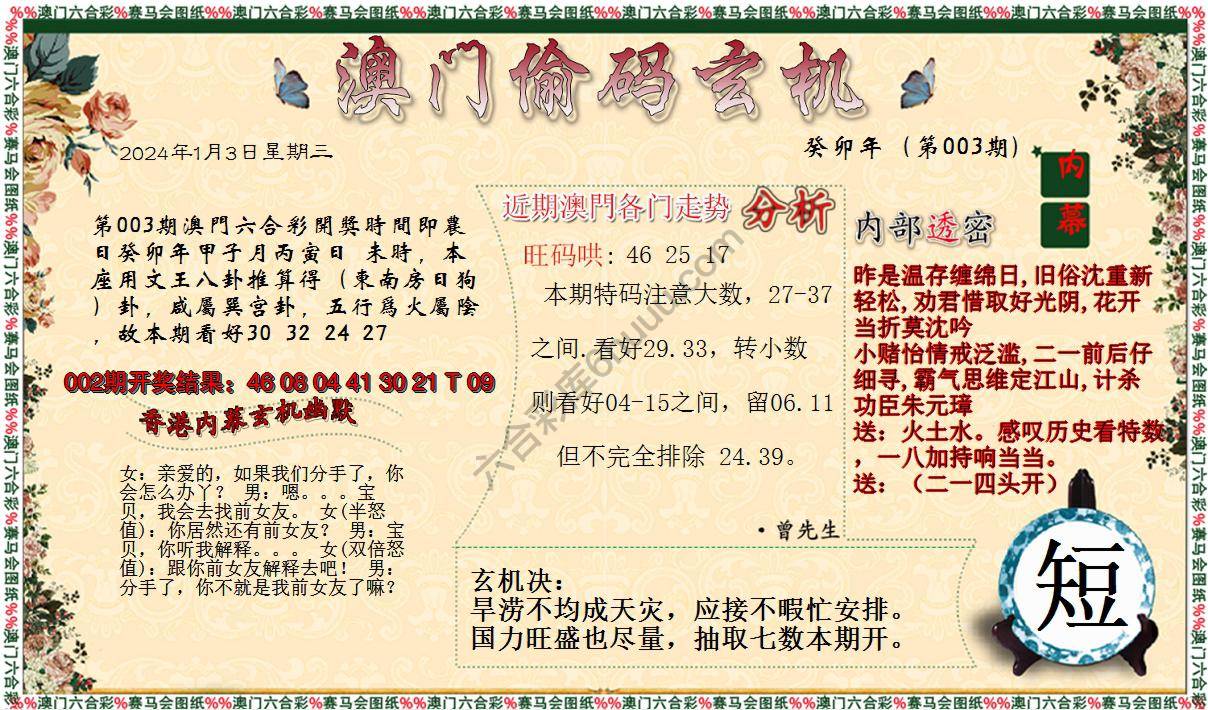 %%澳门六合彩%赛马会图纸%%澳门六合彩%赛马会图纸%%澳门六合彩%赛马会图纸%%澳门六合彩%赛马会图纸%%澳门六合彩%赛马会图纸%%澳门六合彩%赛马会图纸
澳门偷码玄机
2024年1月3日星期三
癸卯年（第003期）
内
幕
第003期澳門六合彩開獎時間即農
日癸卯年甲子月丙寅日 未時，本
座用文王八卦推算得（東南房日狗
）卦，咸屬巽宫卦，五行爲火屬陰
，故本期看好30 32 24 27
002期开奖结果：46 08 04 41 30 21 T 09
香港内幕玄机幽默
女：亲爱的，如果我们分手了，你
会怎么办丫？ 男：嗯。。。宝
贝，我会去找前女友。 女(半怒
值)：你居然还有前女友？ 男：宝
贝，你听我解释。。。 女(双倍怒
值)：跟你前女友解释去吧！ 男：
分手了，你不就是我前女友了嘛？
近期澳門各门走势 分析
旺码哄: 46 25 17
本期特码注意大数，27-37
之间.看好29.33，转小数
则看好04-15之间，留06.11
但不完全排除 24.39。
·曾先生
内部透密
昨是温存缠绵日,旧俗沈重新
轻松,劝君惜取好光阴,花开
当折莫沈吟
小赌怡情戒泛滥,二一前后仔
细寻,霸气思维定江山,计杀
功臣朱元璋
送：火土水。感叹历史看特数
，一八加持响当当。
送：（二一四头开）
玄机决：
旱涝不均成天灾，应接不暇忙安排。
国力旺盛也尽量，抽取七数本期开。
短
%%澳门六合彩%赛马会图纸%%澳门六合彩%赛马会图纸%%澳门六合彩%赛马会图纸%%澳门六合彩%赛马会图纸%%澳门六合彩%赛马会图纸%%澳门六合彩%赛马会图纸